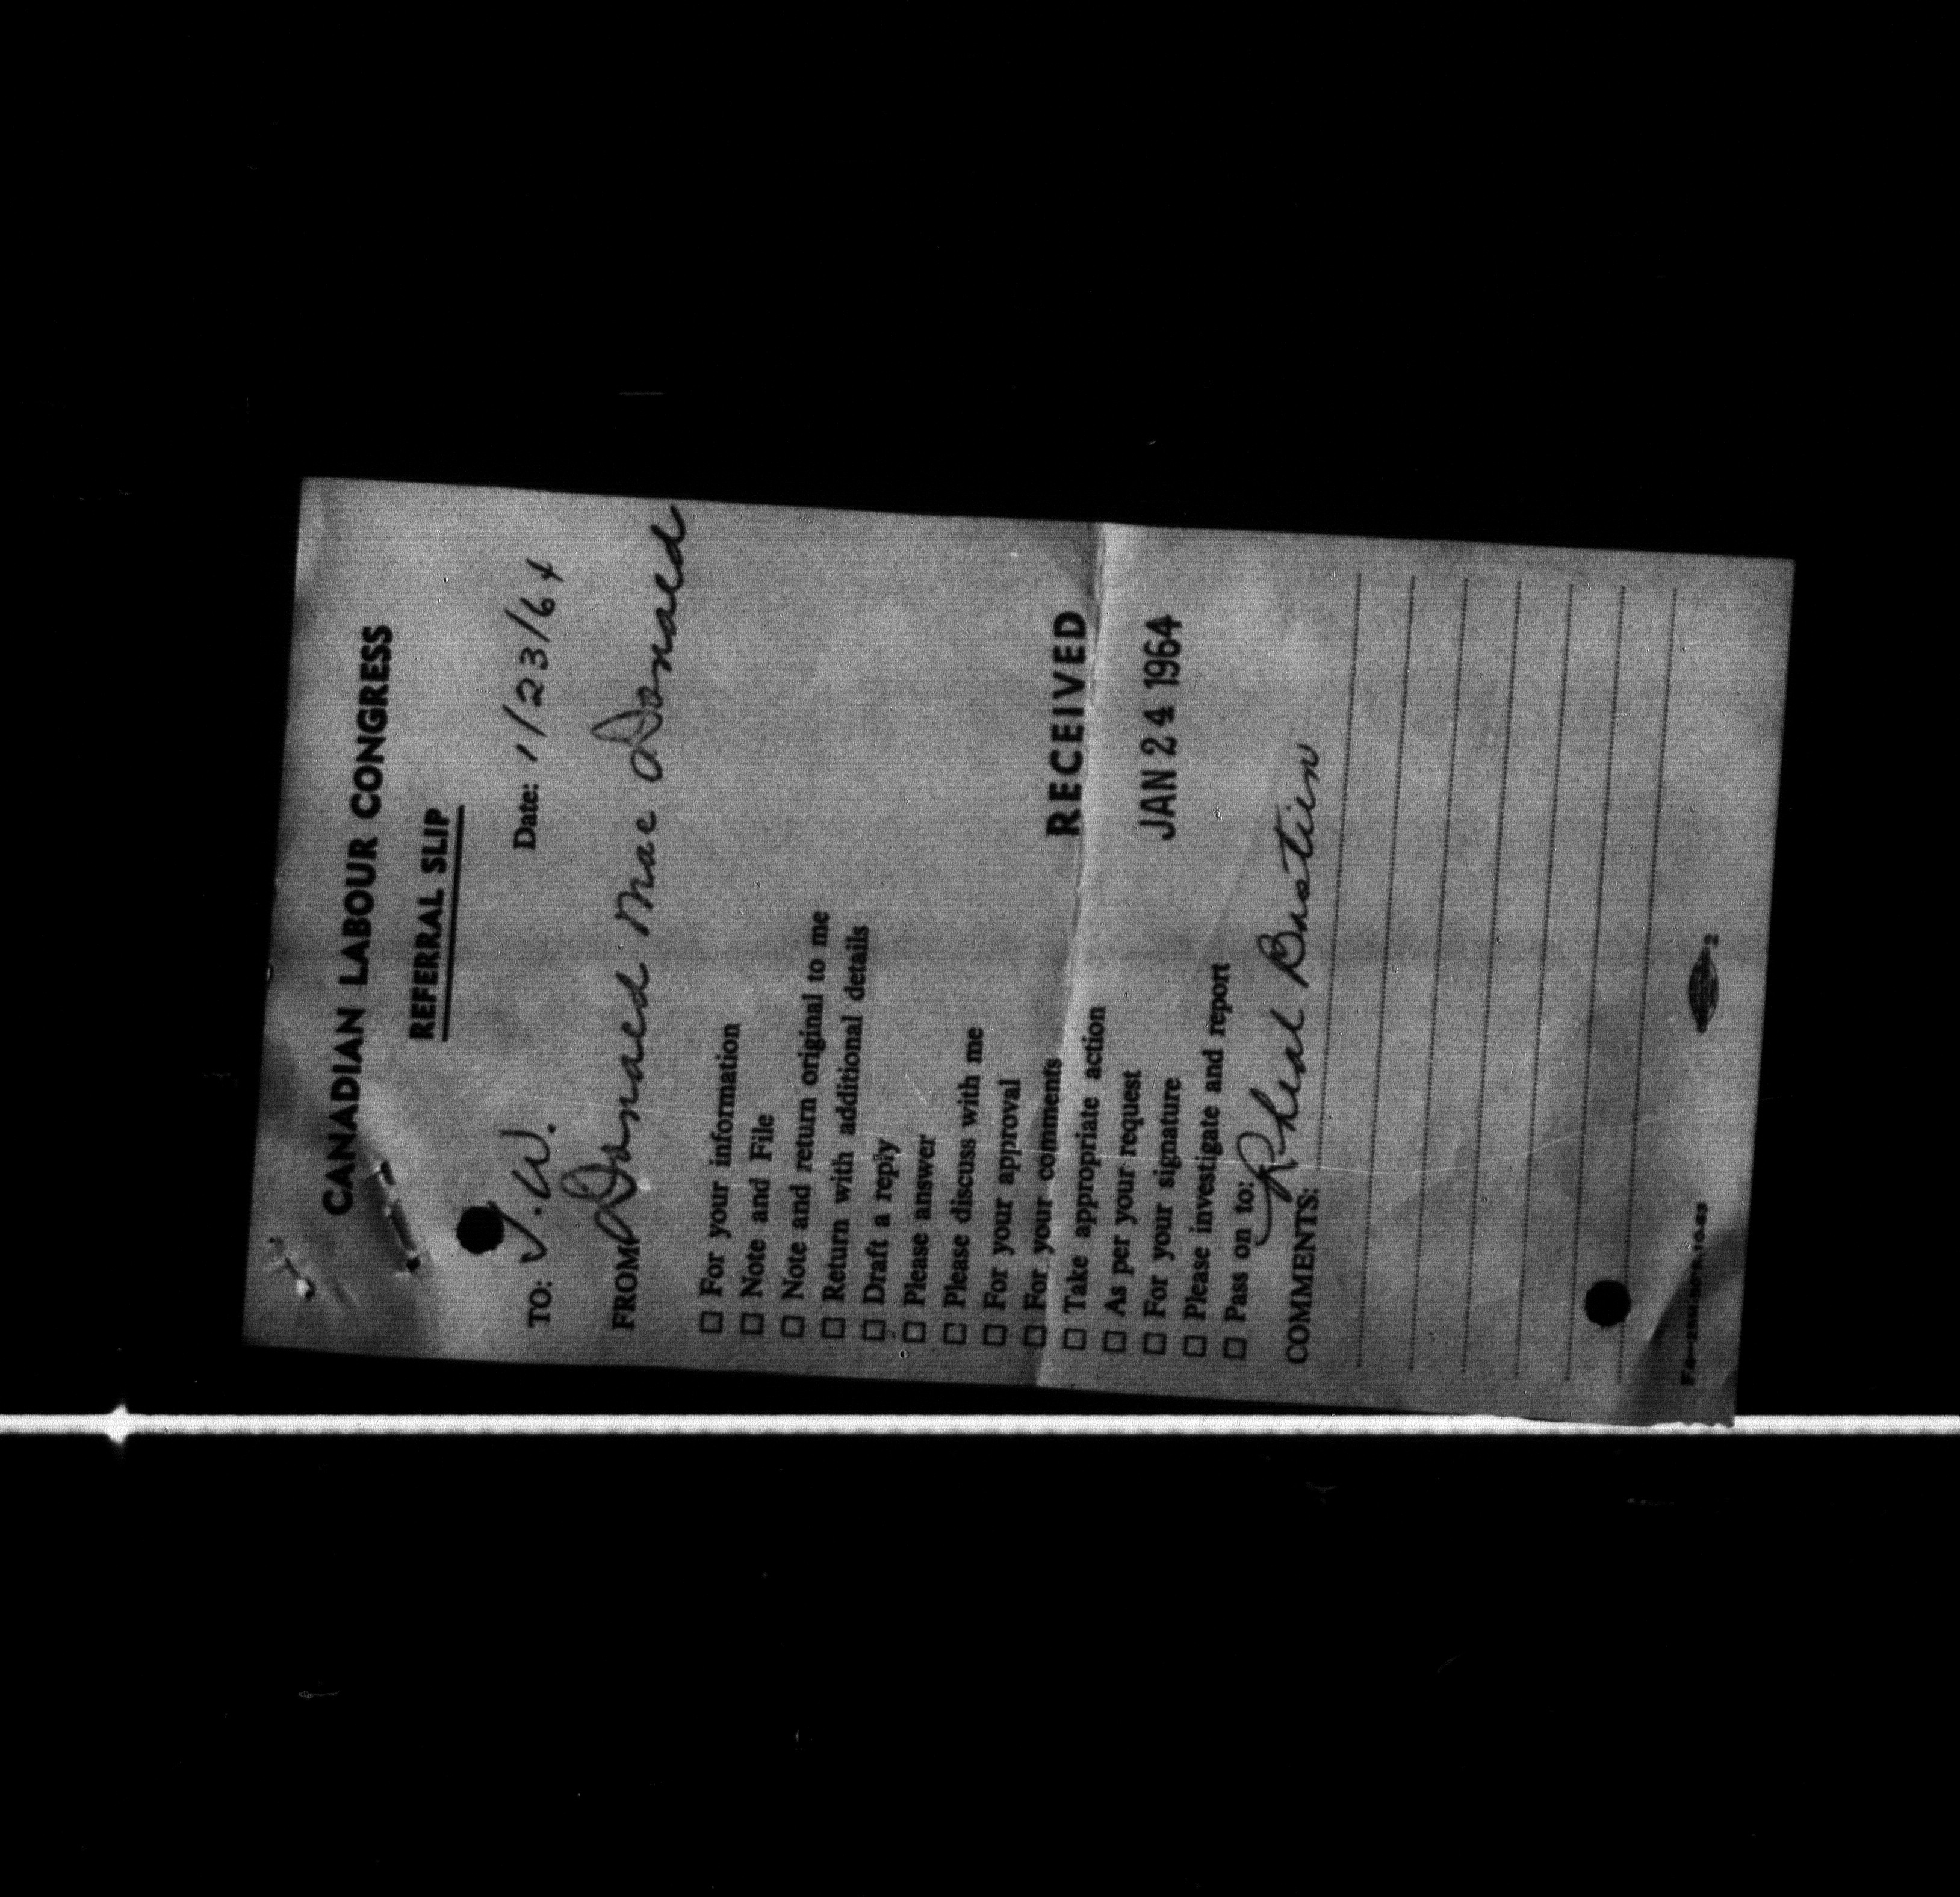 CANADIAN LABOUR CONGRESS
REFERRAL SLIP
TO: V.W. Date: 1/23/64
FROM: Donald Mac Donald
☐ For your information
☐ Note and File
☐ Note and return original to me
☐ Return with additional details
☐ Draft a reply
☐ Please answer
☐ Please discuss with me
☐ For your approval
☐ For your comments
RECEIVED
☐ Take appropriate action
☐ As per your request
JAN 24 1964
☐ For your signature
☐ Please investigate and report
☐ Pass on to:
COMMENTS: Rheal Bastien
2